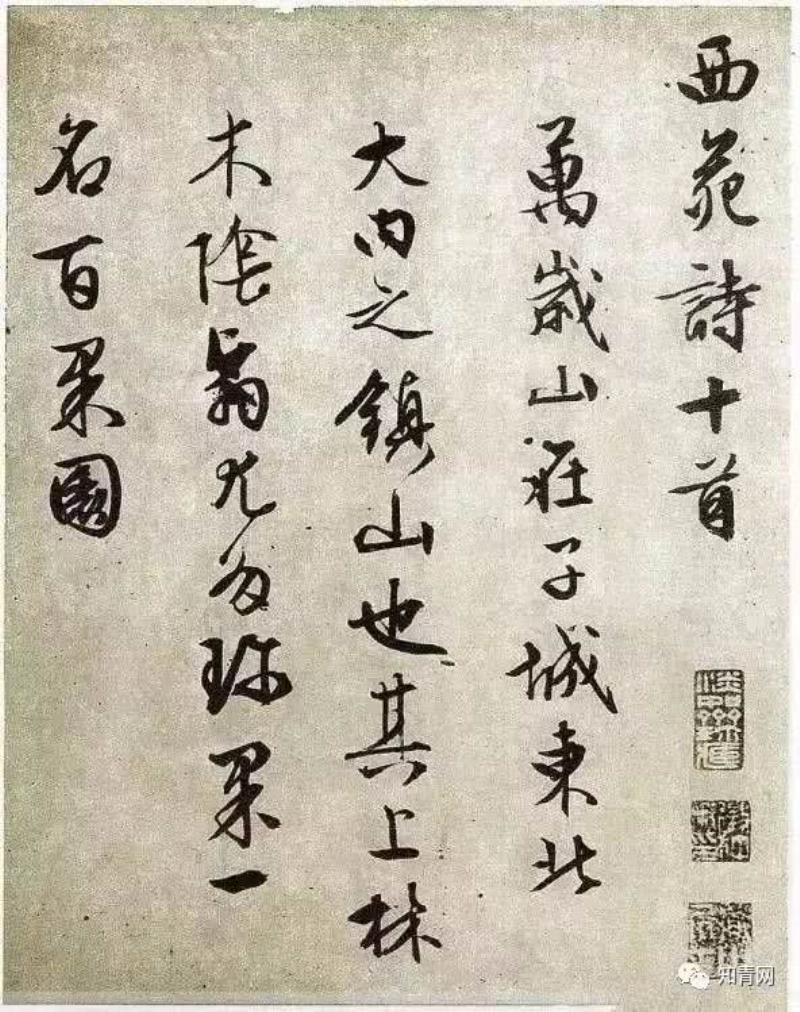 西苑詩十首
萬歲山在子城東北
大内之鎮山也其上林
木陰翳尤多珎果一
名百果園
知青网